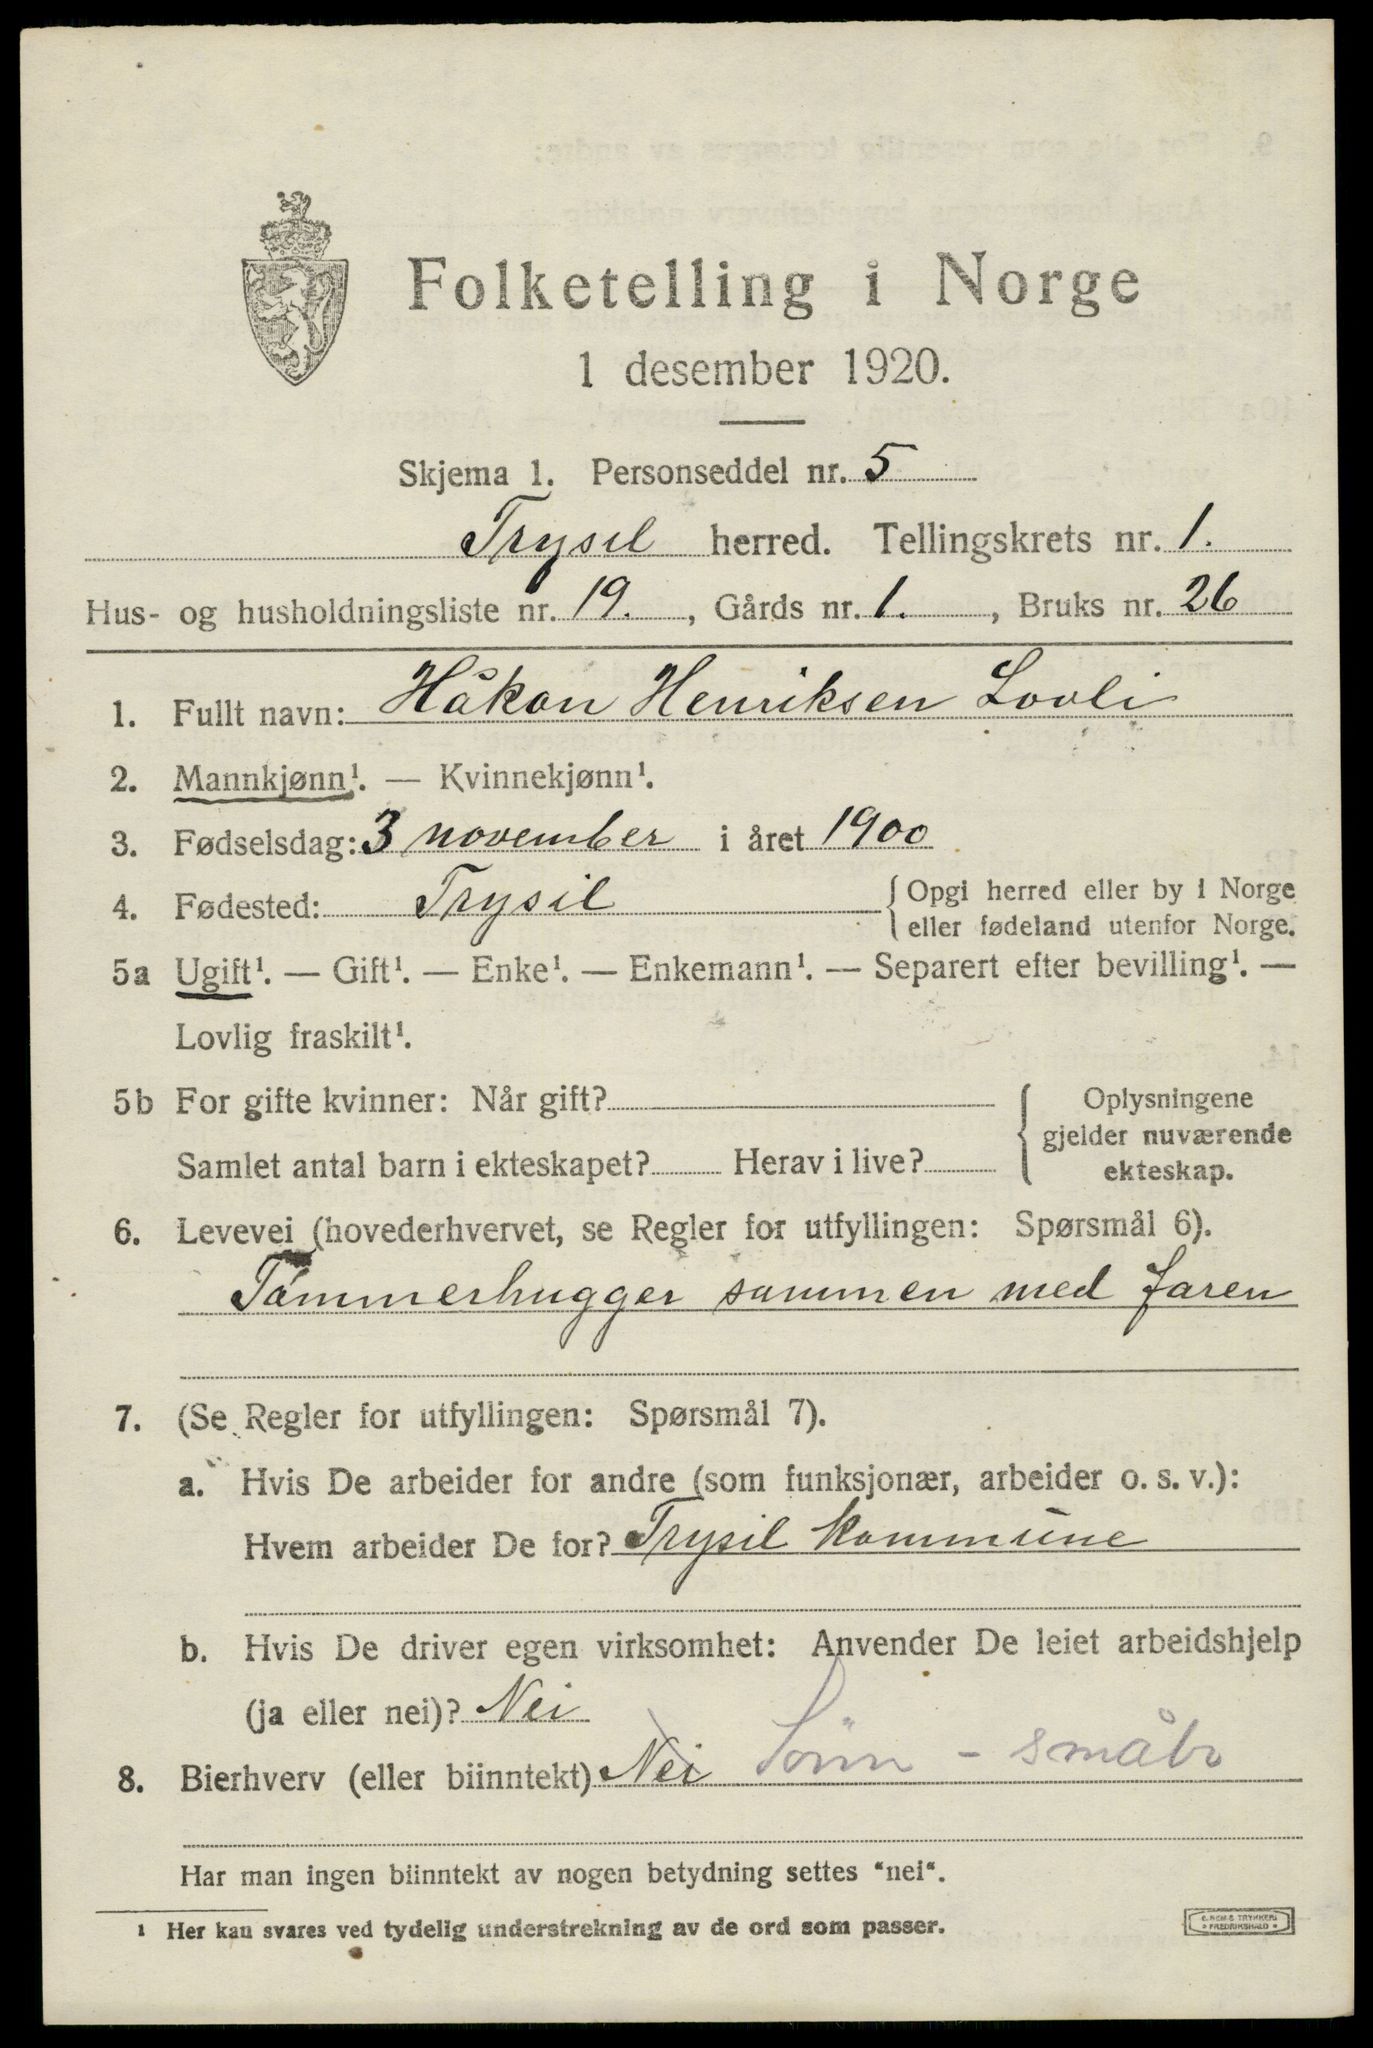 Folketelling i Norge
1 desember 1920.
Skjema 1. Personseddel nr. 5
Trysil herred. Tellingskrets nr. 1.
Hus- og husholdningsliste nr. 19. , Gårds nr. 1. , Bruks nr. 26
1. Fullt navn: Håkon Henriksen Lovli
2. Mannkjønn¹. — Kvinnekjønn¹.
3. Fødselsdag: 3 november i året 1900
4. Fødested: Trysil { Opgi herred eller by i Norge
eller fødeland utenfor Norge.
5a Ugift¹. — Gift¹. — Enke¹. — Enkemann¹. — Separert efter bevilling¹. —
Lovlig fraskilt¹.
5b For gifte kvinner: Når gift?
Samlet antal barn i ekteskapet? Herav i live?
{ Oplysningene
gjelder nuværende
ekteskap.
6. Levevei (hovederhvervet, se Regler for utfyllingen: Spørsmål 6).
Tømmerhugger sammen med faren
7. (Se Regler for utfyllingen: Spørsmål 7).
a. Hvis De arbeider for andre (som funksjonær, arbeider o. s. v.):
Hvem arbeider De for? Trysil kommune
b. Hvis De driver egen virksomhet: Anvender De leiet arbeidshjelp
(ja eller nei)? Nei
8. Bierhverv (eller biinntekt) Nei Sønn - småbr
Har man ingen biinntekt av nogen betydning settes "nei".
¹ Her kan svares ved tydelig understrekning av de ord som passer.
FREDRIKSHALD